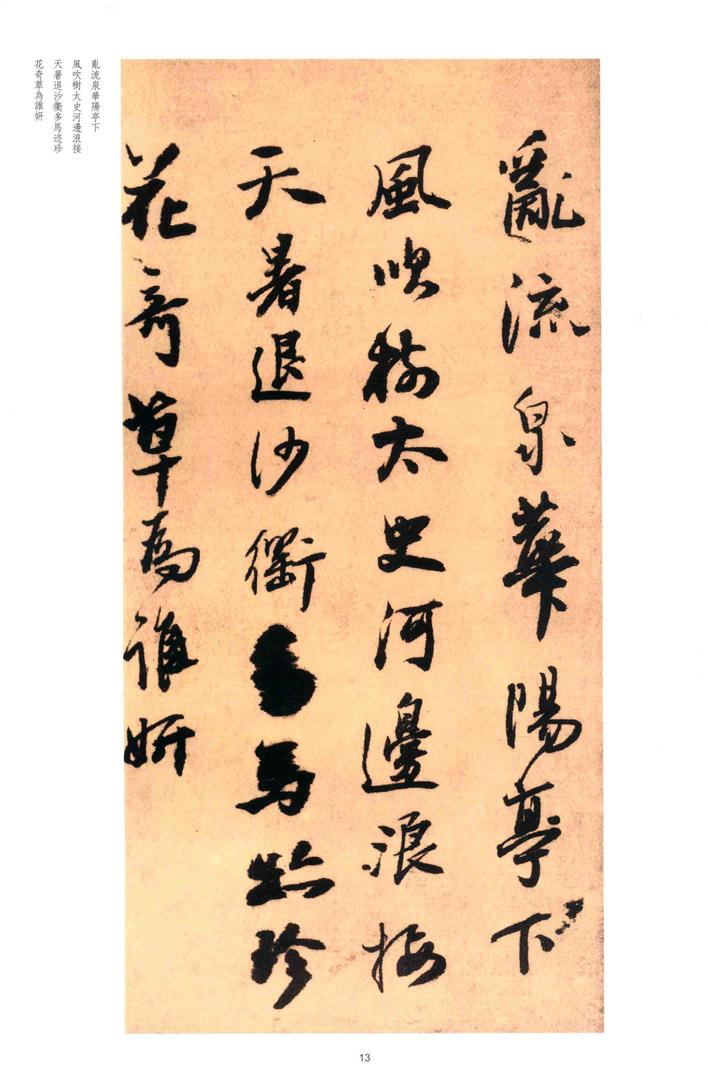 亂流泉華陽亭下
風吹樹太史河邊浪接
天暑退沙衢多馬迹珍
花奇草為誰妍
亂流泉華陽亭下
風吹樹太史河邊浪接
天暑退沙衢多馬迹珍
花奇草為誰妍
13